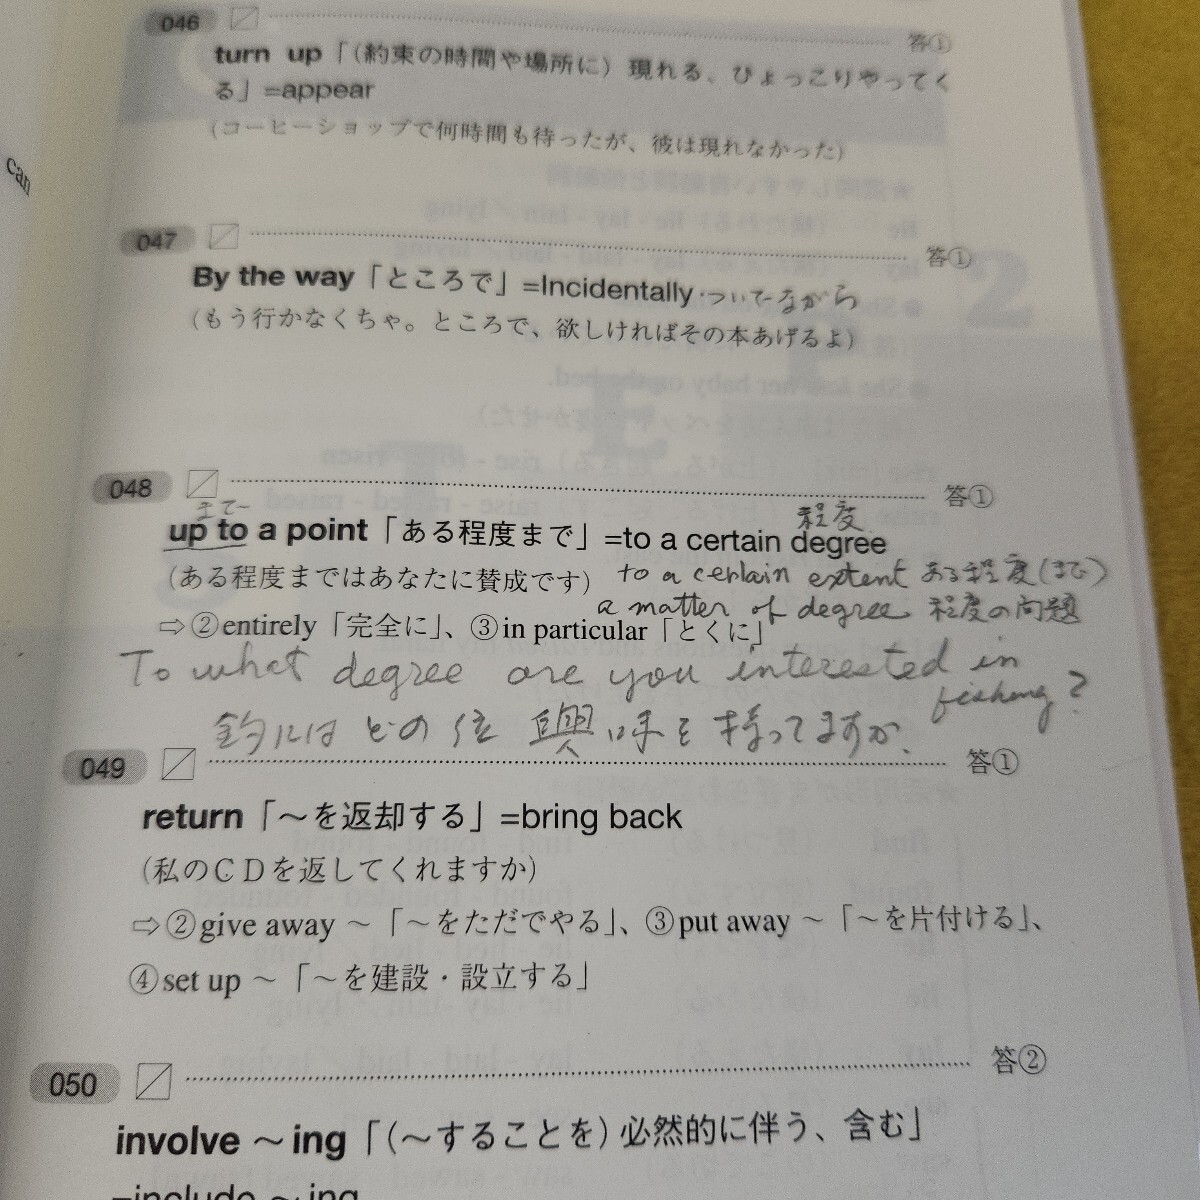 can
046 答①
turn up「(約束の時間や場所に) 現れる、ひょっこりやってく
る」=appear
(コーヒーショップで何時間も待ったが、彼は現れなかった)
047 答①
By the way「ところで」=Incidentally ついでながら
(もう行かなくちゃ。ところで、欲しければその本あげるよ)
048 答①
まで 程度
up to a point「ある程度まで」=to a certain degree
(ある程度まではあなたに賛成です) to a certain extent ある程度(まで)
a matter of degree 程度の問題
⇨②entirely「完全に」、③in particular「とくに」
To what degree are you interested in
fishing?
釣りには どの位 興味を持ってますか.
049 答①
return「～を返却する」=bring back
(私のＣＤを返してくれますか)
⇨②give away ～「～をただでやる」、③put away ～「～を片付ける」、
④set up ～「～を建設・設立する」
050 答②
involve ～ ing「(～することを) 必然的に伴う、含む」
=include ～ ing